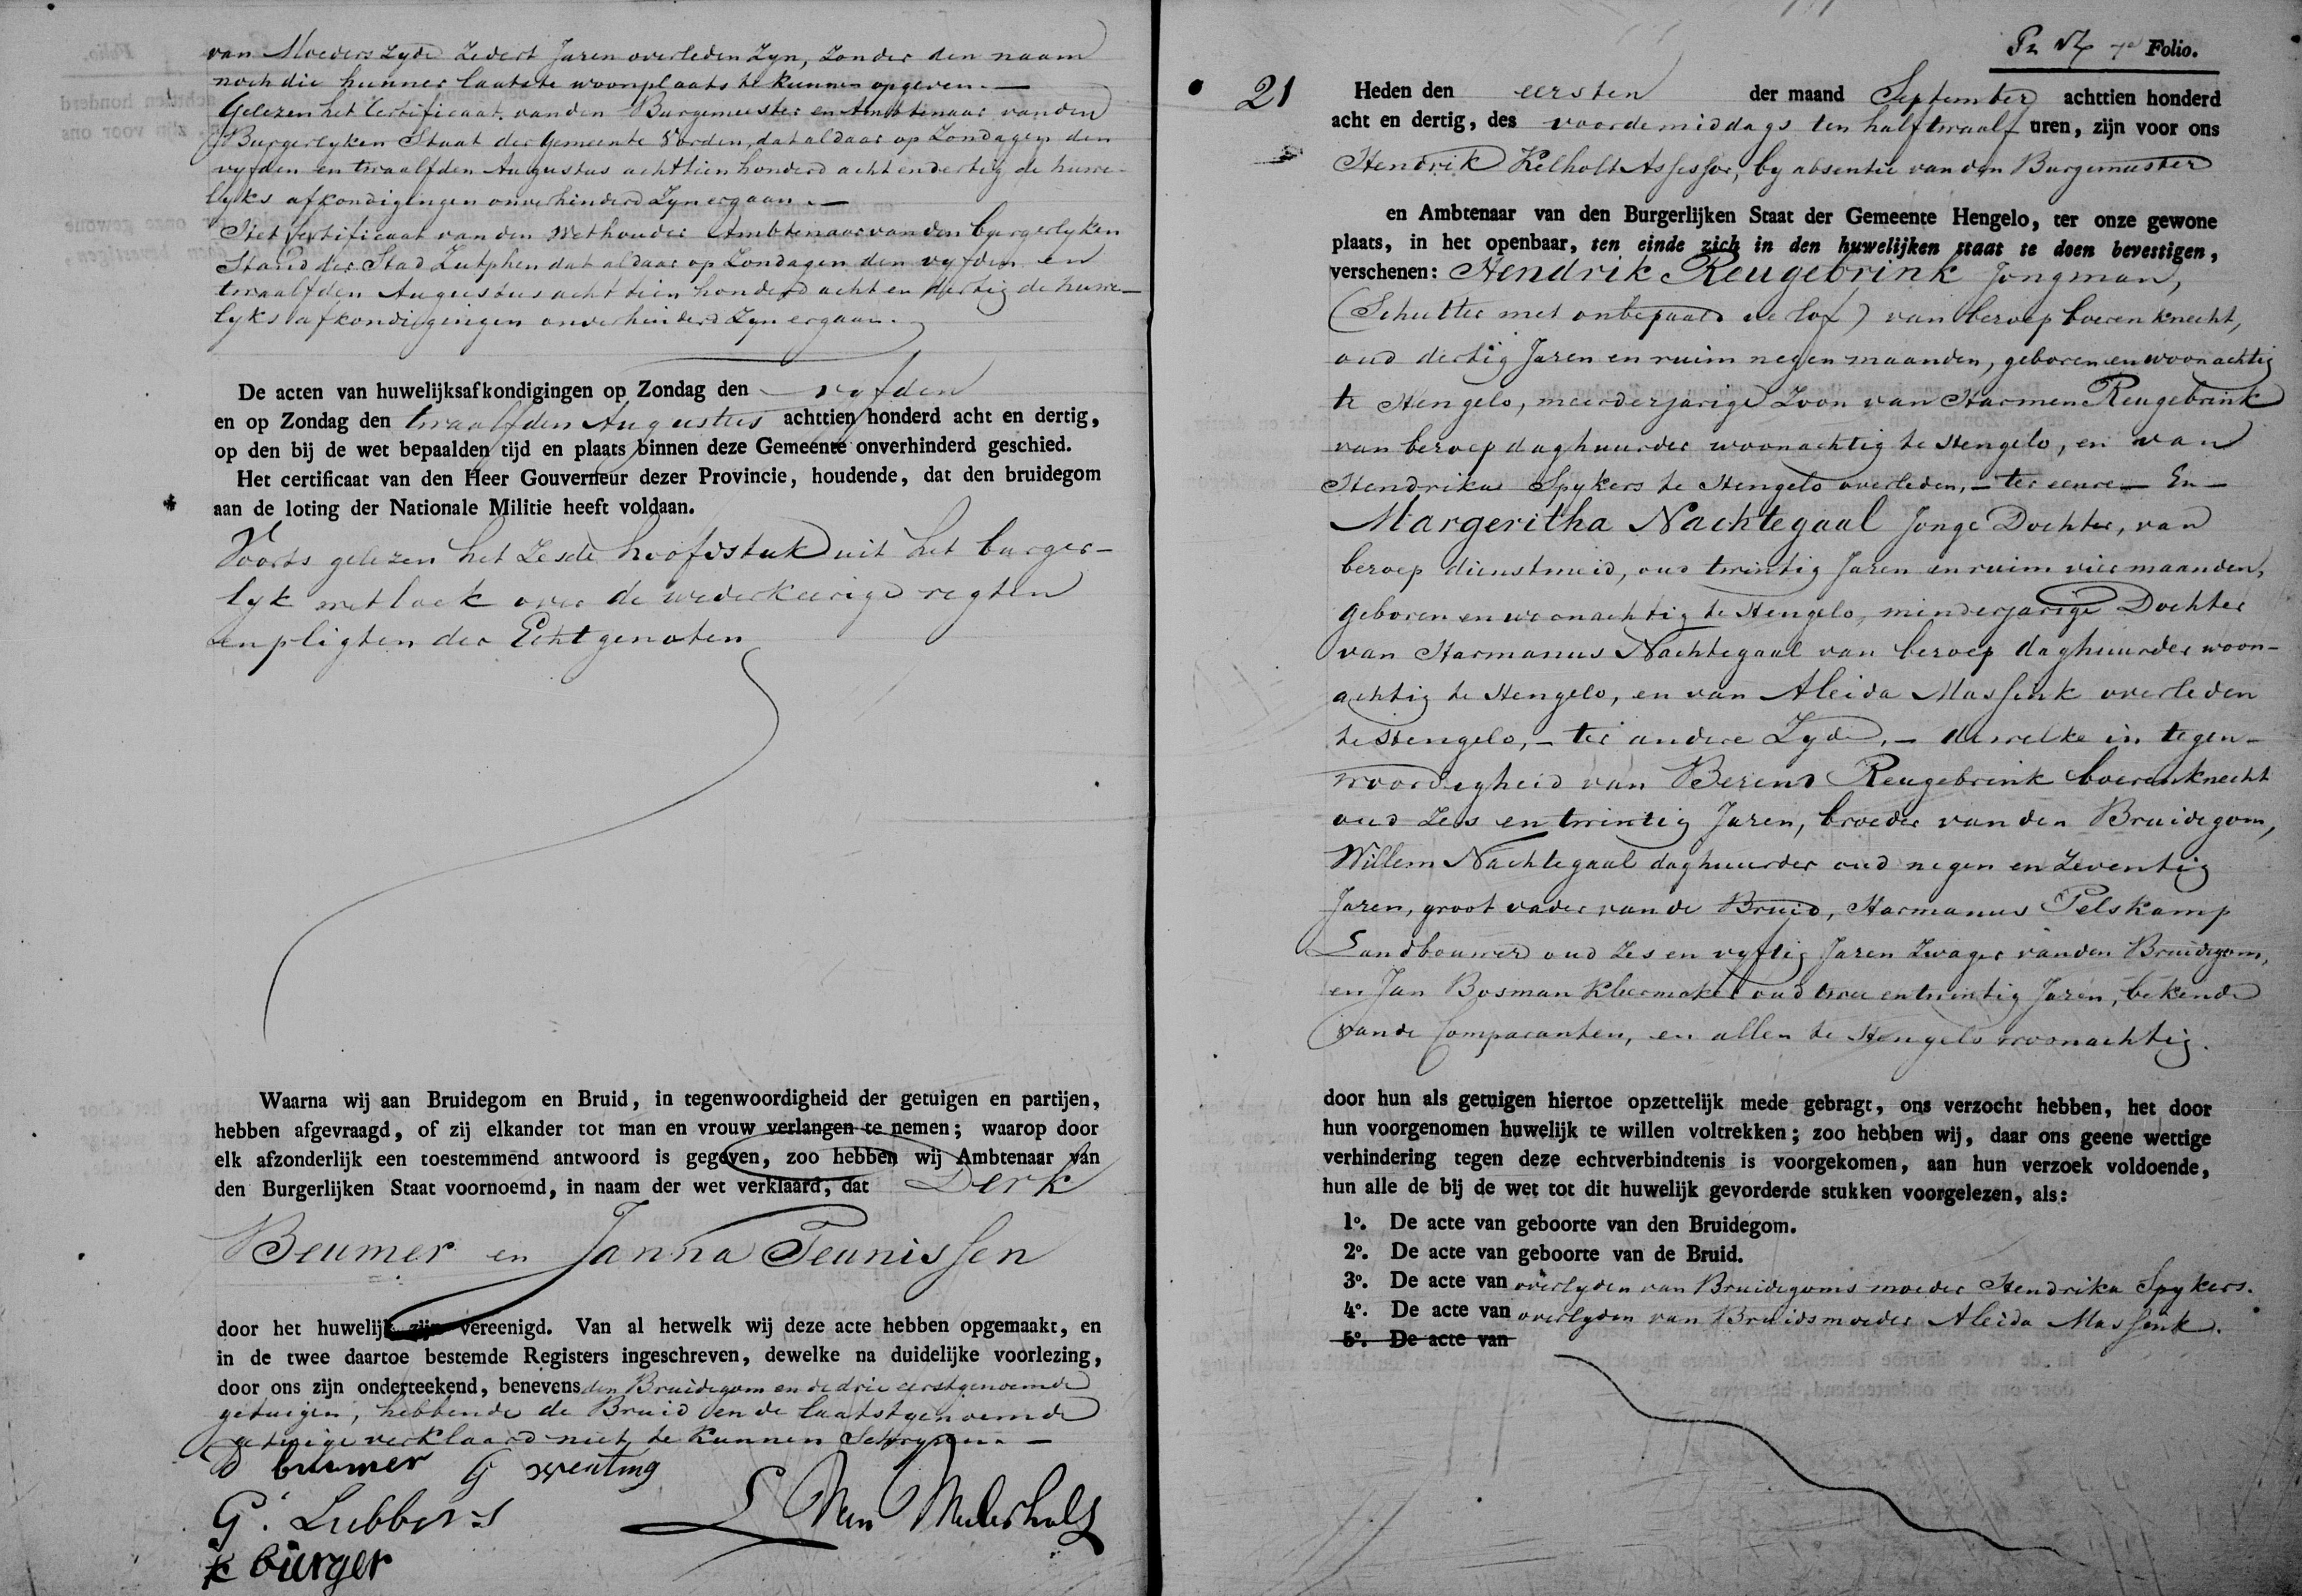 van Moeders zyde zedert Jaren overleden zyn, zonder den naam
noch die hunner laatste woonplaats te kunnen opgeven. —
Gelezen het Certificaat van den Burgemeester en Ambtenaar van den
Burgerlyken Staat der Gemeente Vorden, dat aldaar op Zondagen den
vyfden en twaalfden Augustus achttien honderd acht en dertig de huwe-
lyks afkondigingen onverhinderd zyn ergaan. —
Het Certificaat van den Wethouder Ambtenaar van den burgerlyken
Stand der Stad Zutphen dat aldaar op Zondagen den vyfden en
twaalfden Augustus acht tien honderd acht en dertig de huwe-
lyks afkondigingen onverhinderd zyn ergaan.
De acten van huwelijksafkondigingen op Zondag den vyfden
en op Zondag den twaalfden Augustus achttien honderd acht en dertig,
op den bij de wet bepaalden tijd en plaats binnen deze Gemeente onverhinderd geschied.
Het certificaat van den Heer Gouverneur dezer Provincie, houdende, dat den bruidegom
aan de loting der Nationale Militie heeft voldaan.
Voorts gelezen het Zesde hoofdstuk uit het burger-
lyk wetboek over de wederkeerige regten
en pligten der Echtgenoten
Waarna wij aan Bruidegom en Bruid, in tegenwoordigheid der getuigen en partijen,
hebben afgevraagd, of zij elkander tot man en vrouw verlangen te nemen; waarop door
elk afzonderlijk een toestemmend antwoord is gegeven, zoo hebben wij Ambtenaar van
den Burgerlijken Staat voornoemd, in naam der wet verklaard, dat Derk
Beumer en Janna Teunissen
door het huwelijk zijn vereenigd. Van al hetwelk wij deze acte hebben opgemaakt, en
in de twee daartoe bestemde Registers ingeschreven, dewelke na duidelijke voorlezing,
door ons zijn onderteekend, benevens den Bruidegom en de drie eerstgenoemde
getuigen, hebbende de Bruid en de laatstgenoemde
getuige verklaard niet te kunnen Schryven. —
D beumer G wenting
G. Lubbers
k burger
Folio.
21
Heden den eersten der maand September achttien honderd
acht en dertig, des voordemiddags ten half twaalf uren, zijn voor ons
Hendrik Kelholt Assessor, by absentie van den Burgemeester
en Ambtenaar van den Burgerlijken Staat der Gemeente Hengelo, ter onze gewone
plaats, in het openbaar, ten einde zich in den huwelijken staat te doen bevestigen,
verschenen: Hendrik Reugebrink Jongman,
(Schutter met onbepaald verlof) van beroep boeren knecht,
oud dertig Jaren en ruim negen maanden, geboren en woonachtig
te Hengelo, meerderjarige Zoon van Harmen Reugebrink
van beroep daghuurder woonachtig te Hengelo, en van
Hendrika Spykers te Hengelo overleden, — ter eenre — En —
Margeritha Nachtegaal Jonge Dochter, van
beroep dienstmeid, oud twintig Jaren en ruim vier maanden,
geboren en woonachtig te Hengelo, minderjarige Dochter
van Harmanus Nachtegaal van beroep daghuurder woon-
achtig te Hengelo, en van Aleida Massink overleden
te Hengelo, — ter andere Zyde, — dewelke in tegen-
woordigheid van Berend Reugebrink boerenknecht
oud zes en twintig Jaren, broeder van den Bruidegom,
Willem Nachtegaal daghuurder oud negen en Zeventig
Jaren, groot vader van de Bruid, Harmanus Pelskamp
Landbouwer oud zes en vyftig Jaren Zwager van den Bruidegom,
en Jan Bosman Kleermaker oud twee en twintig Jaren, bekende
van de Comparanten, en allen te Hengelo woonachtig.
door hun als getuigen hiertoe opzettelijk mede gebragt, ons verzocht hebben, het door
hun voorgenomen huwelijk te willen voltrekken; zoo hebben wij, daar ons geene wettige
verhindering tegen deze echtverbindtenis is voorgekomen, aan hun verzoek voldoende,
hun alle de bij de wet tot dit huwelijk gevorderde stukken voorgelezen, als:
1º. De acte van geboorte van den Bruidegom.
2º. De acte van geboorte van de Bruid.
3º. De acte van overlyden van Bruidegoms moeder Hendrika Spykers.
4º. De acte van overlyden van Bruidsmoeder Aleida Massink.
5º. De acte van